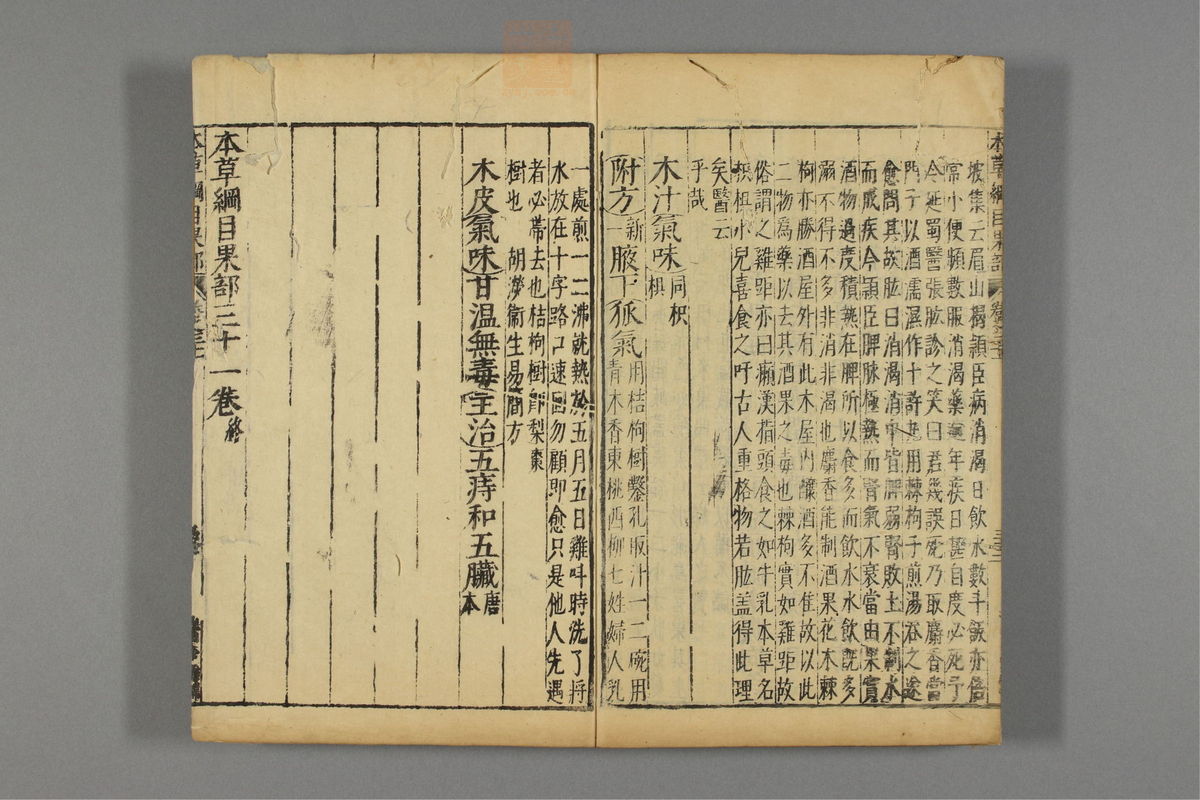 坡集云眉山揭頴臣病消渴日飲水數斗飯亦倍
常小便頻數服消渴藥逾年疾日甚自度必死予
令延蜀醫張肱診之笑曰君幾誤死乃取麝香當
門子以酒濡濕作十許丸用棘枸子煎湯吞之遂
愈問其故肱曰消渴消中皆脾弱腎敗土不制水
而成疾今頴臣脾脉極熱而腎氣不衰當由果實
酒物過度積熱在脾所以食多而飲水水飲既多
溺不得不多非消非渴也麝香能制酒果花木棘
枸亦勝酒屋外有此木屋内釀酒多不佳故以此
二物爲藥以去其酒果之毒也棘枸實如雞距故
俗謂之雞距亦曰癩漢指頭食之如牛乳本草名
枳椇小兒喜食之吁古人重格物若肱盖得此理
矣醫云
乎哉
木汁氣味同枳椇
附方新一腋下狐氣用桔枸樹鑿孔取汁一二碗用
青木香東桃西柳七姓婦人乳
一處煎一二沸就熱於五月五日雞叫時洗了將
水放在十字路口速回勿顧即愈只是他人先遇
者必帶去也桔枸樹即梨棗
樹也 胡濙衞生易簡方
木皮氣味甘温無毒主治五痔和五臟唐本
本草綱目果部三十一卷終